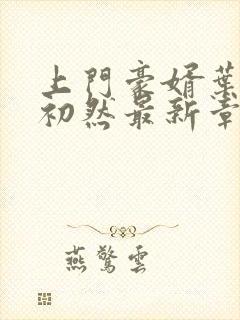 上門豪婿葉
初然最新章
燕驚雲